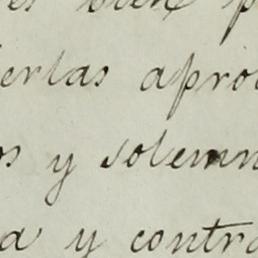 es bien p
ierlas apro
os y solemn
a y contra